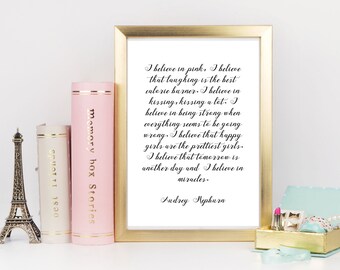 I believe in pink. I believe
that laughing is the best
calorie burner. I believe in
kissing, kissing a lot. I
believe in being strong when
everything seems to be going
wrong. I believe that happy
girls are the prettiest girls.
I believe that tomorrow is
another day and I believe in
miracles.
Audrey Hepburn
Memory box Stories
1920